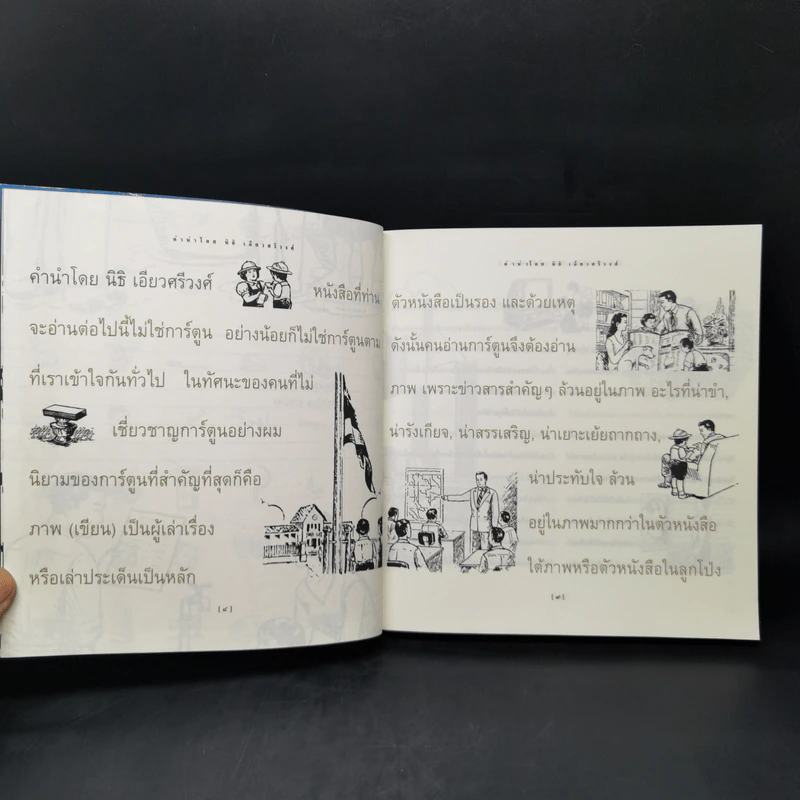 คำนำโดย นิธิ เอียวศรีวงศ์
คำนำโดย นิธิ เอียวศรีวงศ์
หนังสือที่ท่าน
จะอ่านต่อไปนี้ไม่ใช่การ์ตูน อย่างน้อยก็ไม่ใช่การ์ตูนตาม
ที่เราเข้าใจกันทั่วไป ในทัศนะของคนที่ไม่
เชี่ยวชาญการ์ตูนอย่างผม
นิยามของการ์ตูนที่สำคัญที่สุดก็คือ
ภาพ (เขียน) เป็นผู้เล่าเรื่อง
หรือเล่าประเด็นเป็นหลัก
[๔]
คำนำโดย นิธิ เอียวศรีวงศ์
ตัวหนังสือเป็นรอง และด้วยเหตุ
ดังนั้นคนอ่านการ์ตูนจึงต้องอ่าน
ภาพ เพราะข่าวสารสำคัญๆ ล้วนอยู่ในภาพ อะไรที่น่าขำ,
น่ารังเกียจ, น่าสรรเสริญ, น่าเยาะเย้ยถากถาง,
น่าประทับใจ ล้วน
อยู่ในภาพมากกว่าในตัวหนังสือ
ใต้ภาพหรือตัวหนังสือในลูกโป่ง